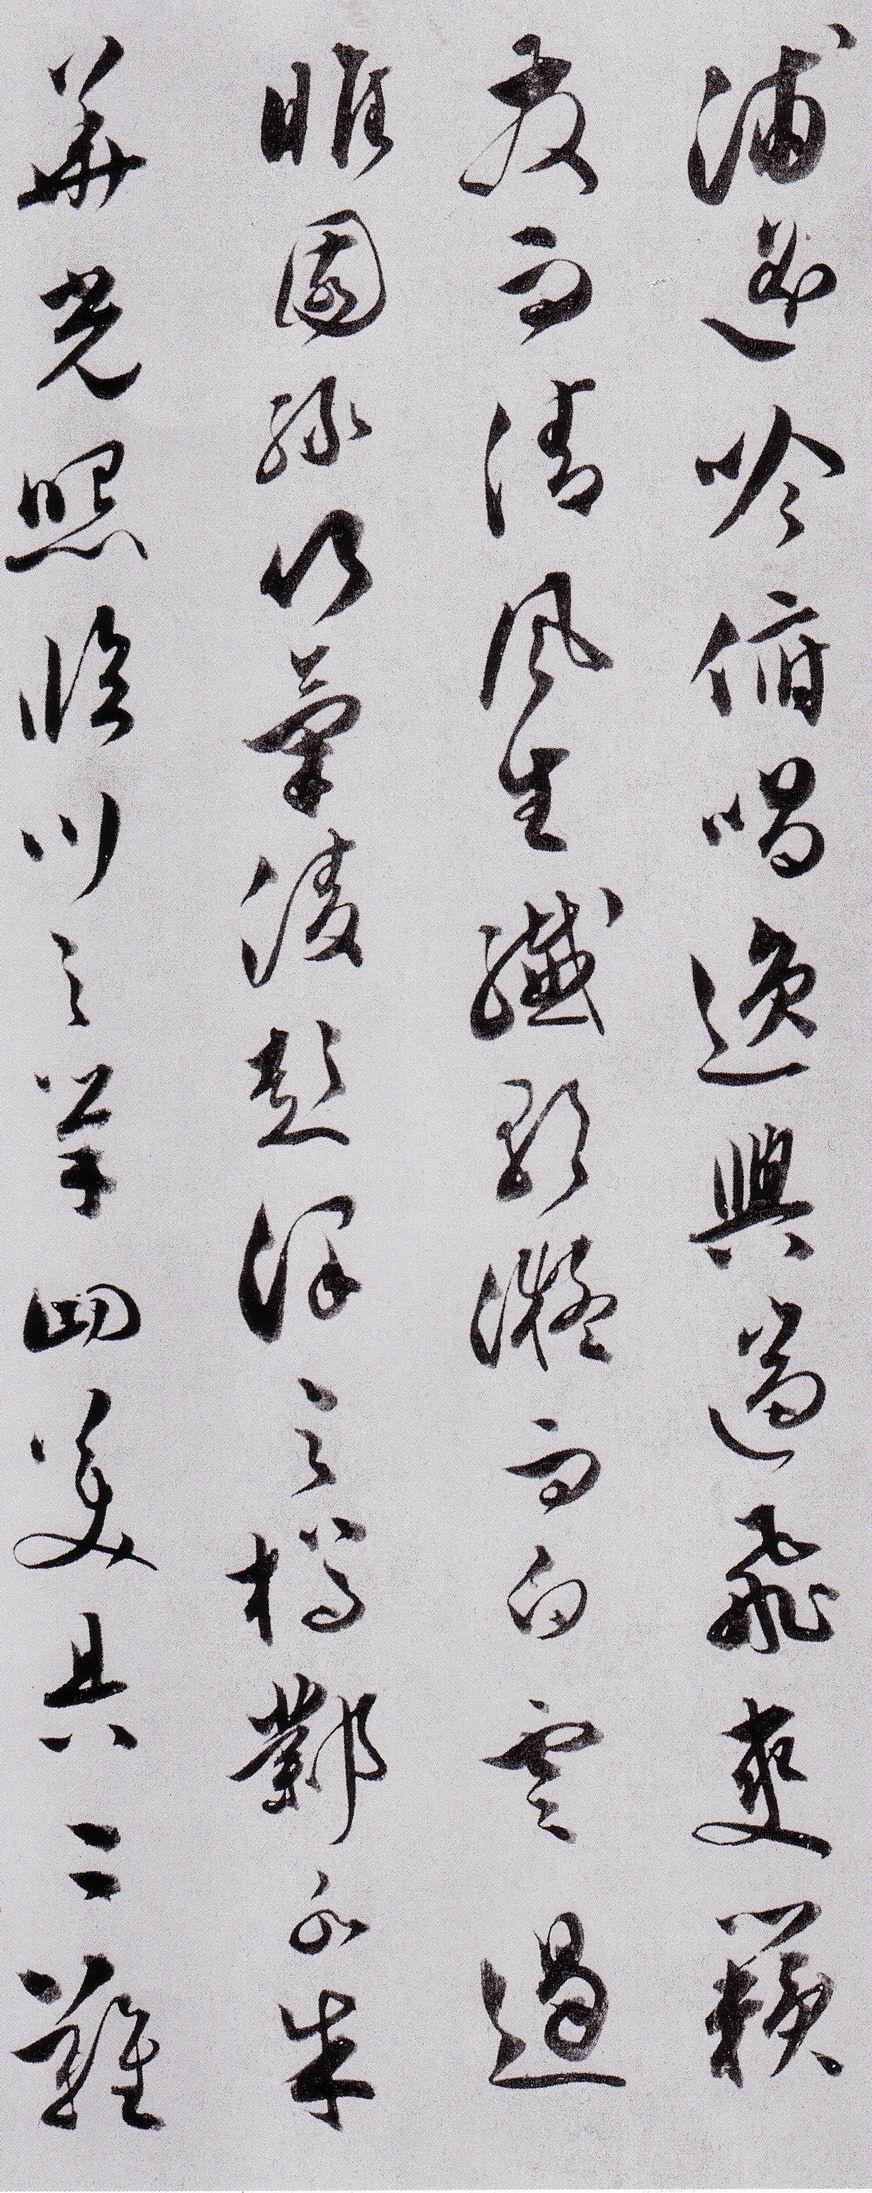 浦遙吟俯唱逸興遄飛爽籟
發而清風生纖歌凝而白雲遏
睢園綠竹氣凌彭澤之樽鄴水朱
華光照臨川之筆四美具二難